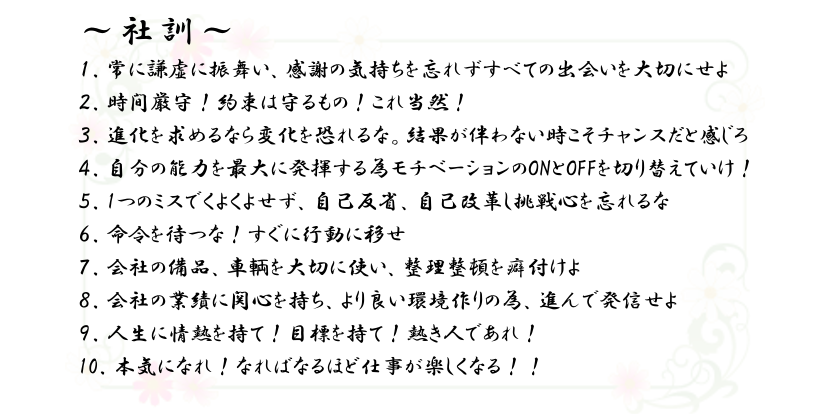 ～社訓～
1. 常に謙虚に振舞い、感謝の気持ちを忘れずすべての出会いを大切にせよ
2. 時間厳守！約束は守るもの！これ当然！
3. 進化を求めるなら変化を恐れるな。結果が伴わない時こそチャンスだと感じろ
4. 自分の能力を最大に発揮する為モチベーションのONとOFFを切り替えていけ！
5. 1つのミスでくよくよせず、自己反省、自己改革し挑戦心を忘れるな
6. 命令を待つな！すぐに行動に移せ
7. 会社の備品、車輌を大切に使い、整理整頓を癖付けよ
8. 会社の業績に関心を持ち、より良い環境作りの為、進んで発信せよ
9. 人生に情熱を持て！目標を持て！熱き人であれ！
10. 本気になれ！なればなるほど仕事が楽しくなる！！